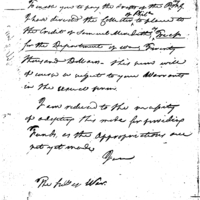 to enable you to pay the troops of the
I have directed the Collector to place to
the Credit of Samuel Meredith
for the Department of War Twenty
thousand Dollars. This sum will
of course be subject to your Warrants
in the usual form.
I am reduced to the necessity
of adopting this mode for providing
Funds, as the Appropriations are
not yet made
The Secy of War.